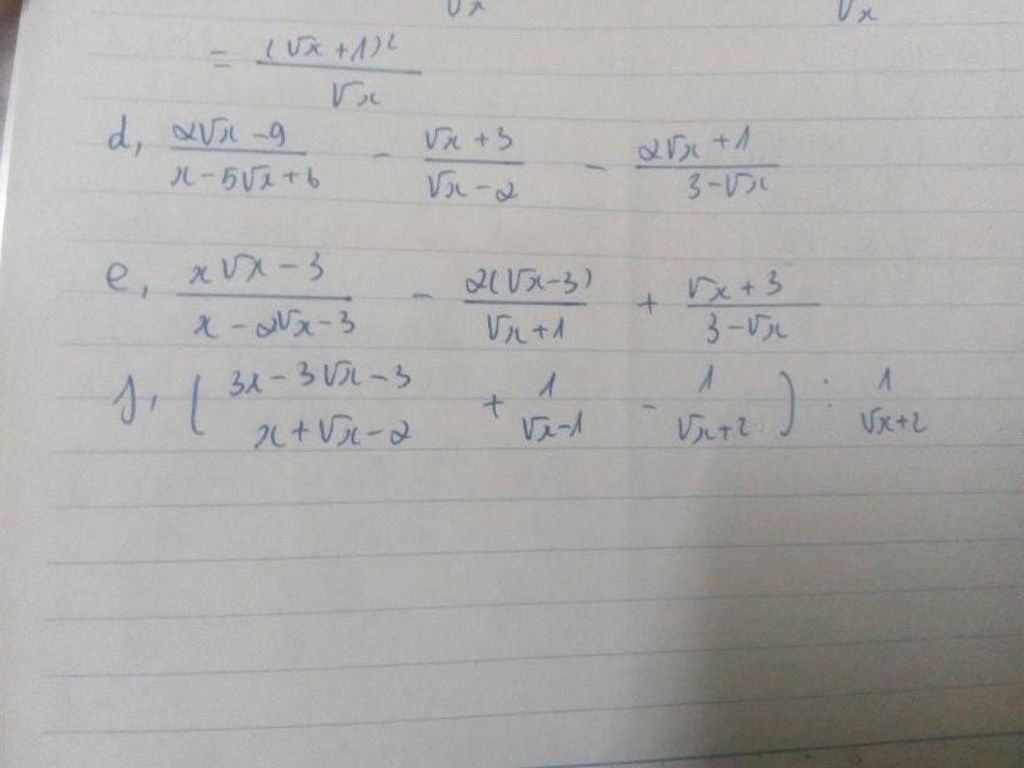 √x √x
= (√x + 1)² / √x
d, (2√x - 9) / (x - 5√x + 6) - (√x + 3) / (√x - 2) - (2√x + 1) / (3 - √x)
e, (x√x - 3) / (x - 2√x - 3) - 2(√x - 3) / (√x + 1) + (√x + 3) / (3 - √x)
f, ( (3x - 3√x - 3) / (x + √x - 2) + 1 / (√x - 1) - 1 / (√x + 2) ) : 1 / (√x + 2)